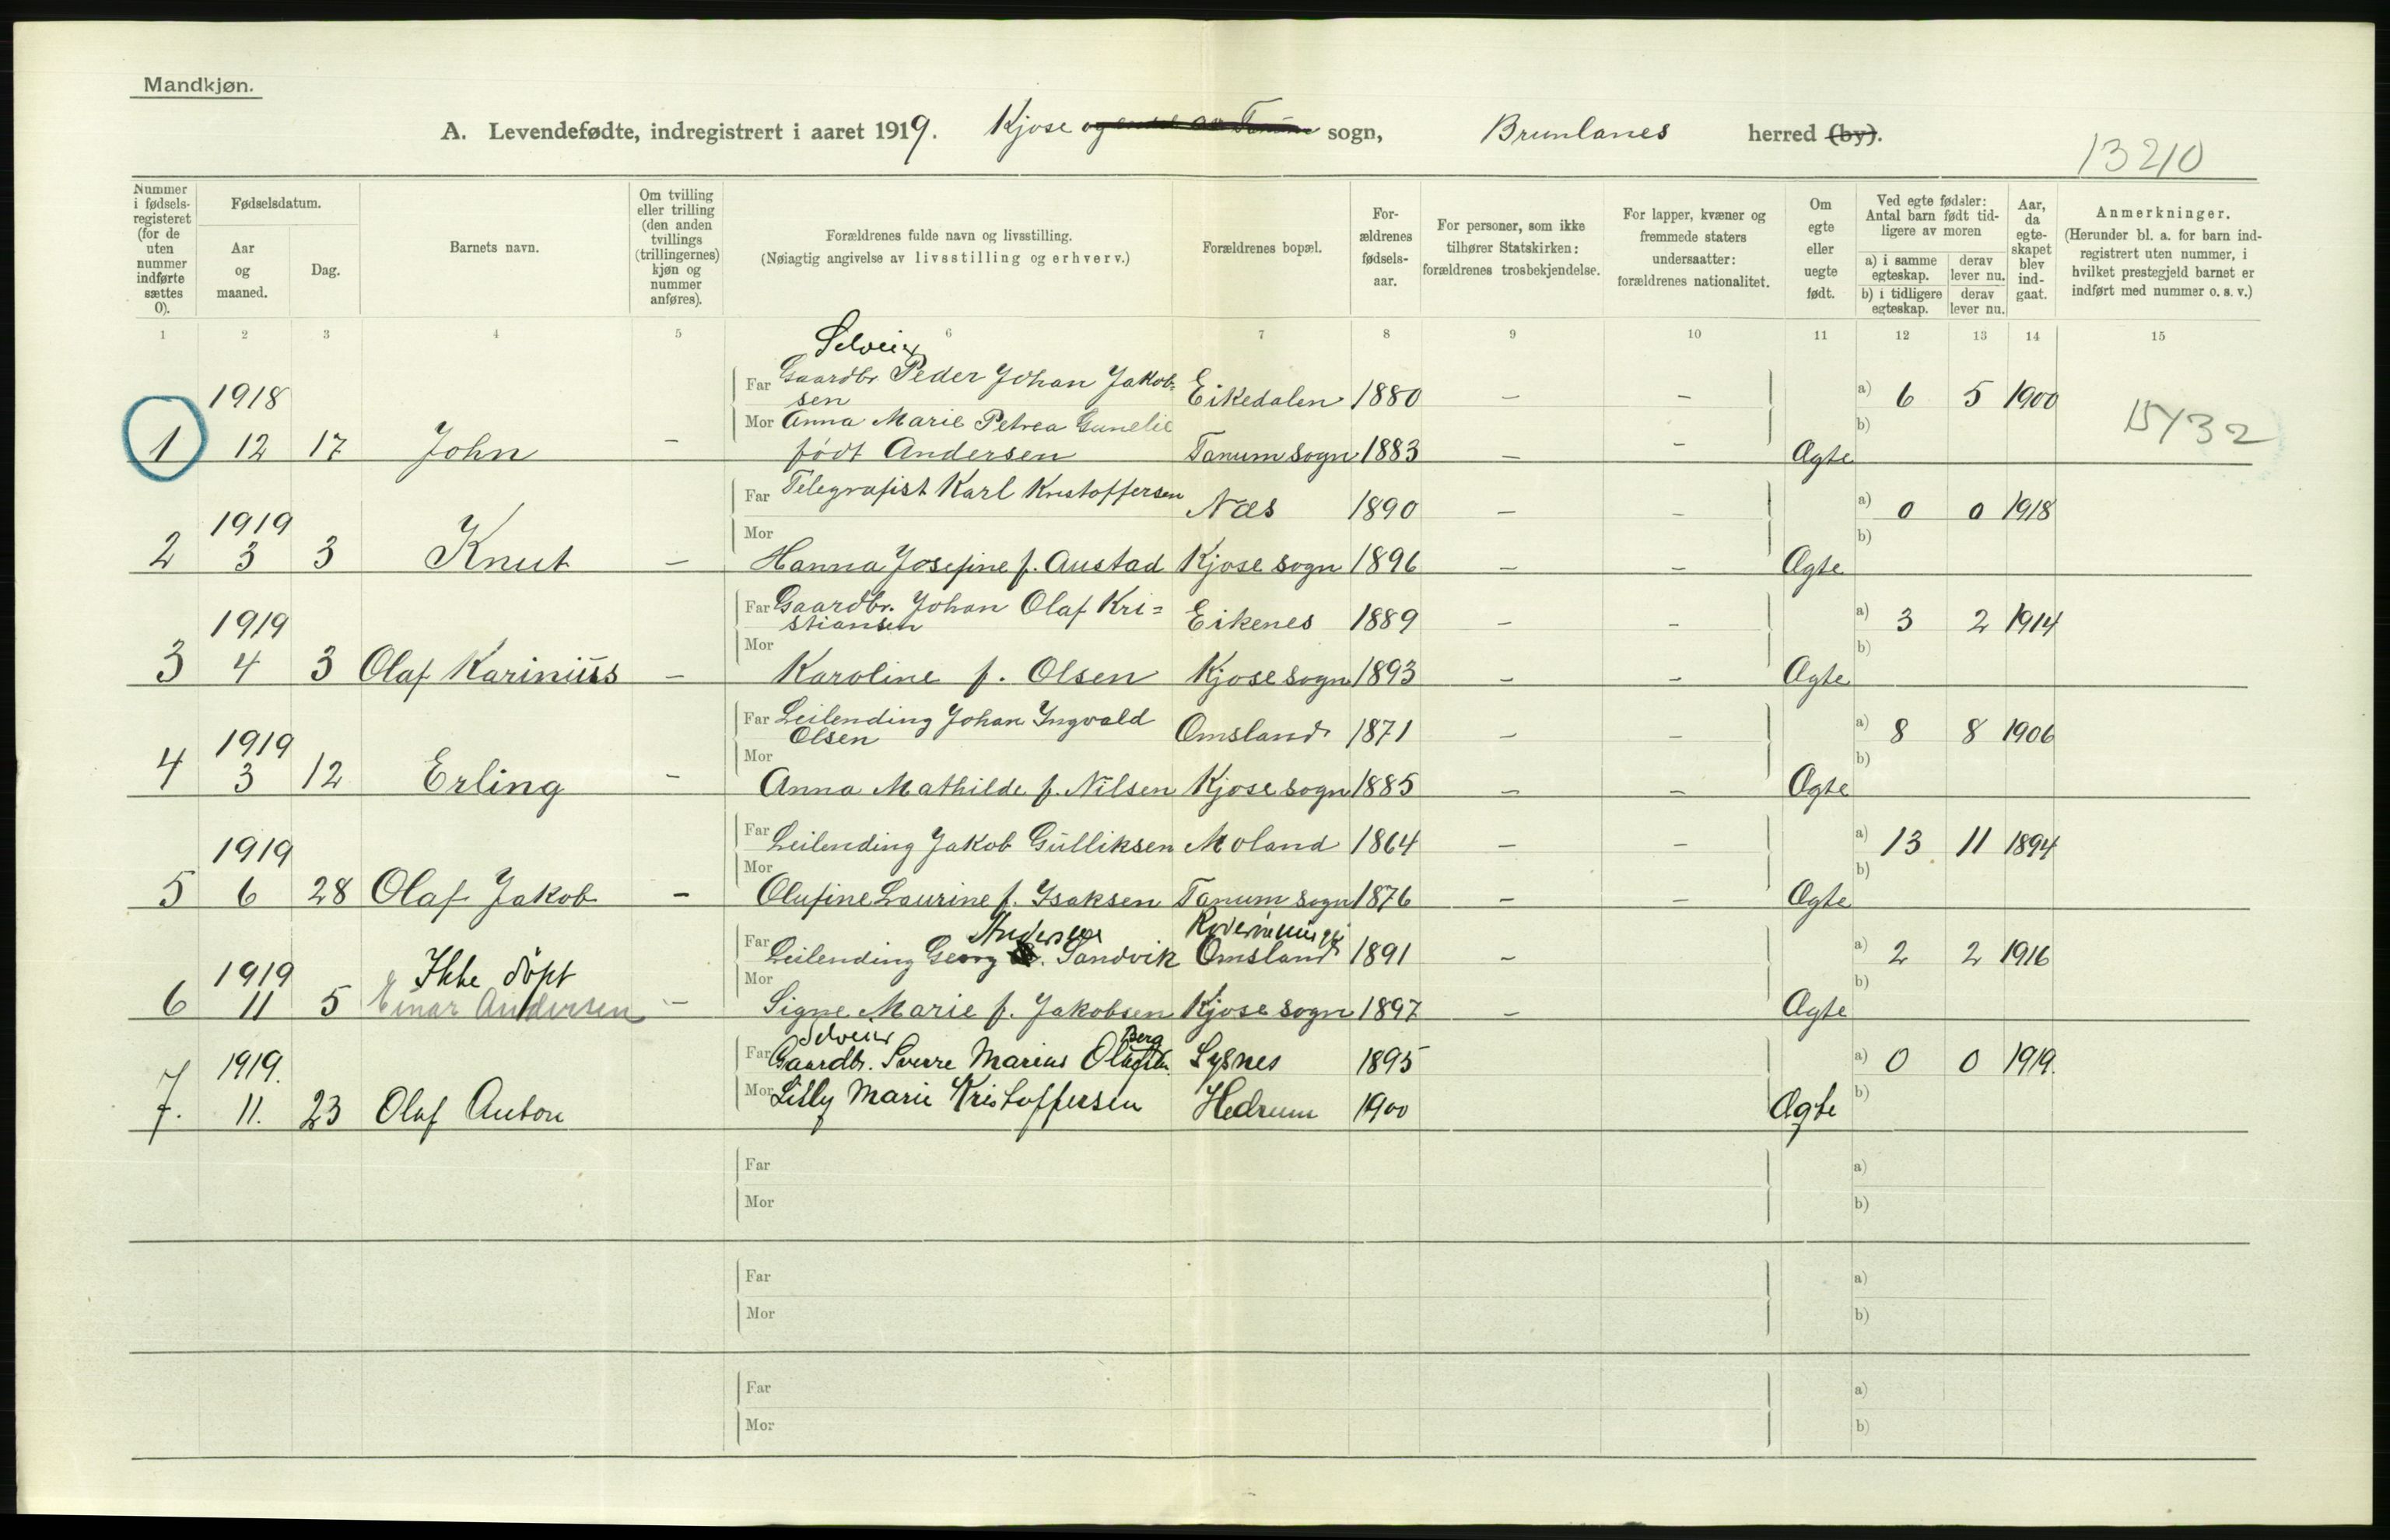 Mandkjøn.
A. Levendefødte, indregistrert i aaret 1919. Kjose sogn, Brunlanes herred (by).
13210
Nummer i fødsels-registeret (for de uten nummer indførte sættes 0).
Fødselsdatum.
Aar og maaned.
Dag.
Barnets navn.
Om tvilling eller trilling (den anden tvillings (trillingernes) kjøn og nummer anføres).
Forældrenes fulde navn og livsstilling.
(Nøiagtig angivelse av livsstilling og erhverv.)
Forældrenes bopæl.
For-ældrenes fødsels-aar.
For personer, som ikke tilhører Statskirken: forældrenes trosbekjendelse.
For lapper, kvæner og fremmede staters undersaatter: forældrenes nationalitet.
Om egte eller uegte født.
Ved egte fødsler: Antal barn født tid-ligere av moren
a) i samme egteskap.
derav lever nu.
b) i tidligere egteskap.
derav lever nu.
Aar, da egte-skapet blev ind-gaat.
Anmerkninger.
(Herunder bl. a. for barn ind-registrert uten nummer, i hvilket prestegjeld barnet er indført med nummer o. s. v.)
1 2 3 4 5 6 7 8 9 10 11 12 13 14 15
Selveier
1918 Far Gaardbr. Peder Johan Jakob-
sen Eikedalen 1880 - - a) 6 5 1900
Mor Anna Marie Petrea Gunelie b)
1 12 17 John - født Andersen Tanum sogn 1883 - - Ægte
Far Telegrafist Karl Kristoffersen
1919 Næs 1890 - - a) 0 0 1918
Mor b)
2 3 3 Knut - Hanna Josefine f. Austad Kjose sogn 1896 - - Ægte
Far Gaardbr. Johan Olaf Kri=
1919 stiansen Eikenes 1889 - - a) 3 2 1914
Mor b)
3 4 3 Olaf Kariniüs - Karoline f. Olsen Kjose sogn 1893 - - Ægte
Far Leilending Johan Ingvald
1919 Olsen Omsland 1871 - - a) 8 8 1906
Mor b)
4 3 12 Erling - Anna Mathilde f. Nilsen Kjose sogn 1885 - - Ægte
1919 Far Leilending Jakob Gülliksen Moland 1864 - - a) 13 11 1894
Mor b)
5 6 28 Olaf Jakob - Olufine Laurine f. Isaksen Tanum sogn 1876 - - Ægte
Andersen
1919 Ikke döpt Far Leilending Georg Sandvik Omsland 1891 - a) 2 2 1916
Mor b)
6 11 5 Einar Andersen - Signe Marie f. Jakobsen Kjose sogn 1897 - Ægte
Selveier Berg
1919. Far Gaardbr. Sverre Marius Lysnes 1895 a) 0 0 1919.
7. 11. 23 Olaf Anton Mor Lilly Marie Kristoffersen Hedrum 1900 Ægte b)
Far a)
Mor b)
Far a)
Mor b)
Far a)
Mor b)